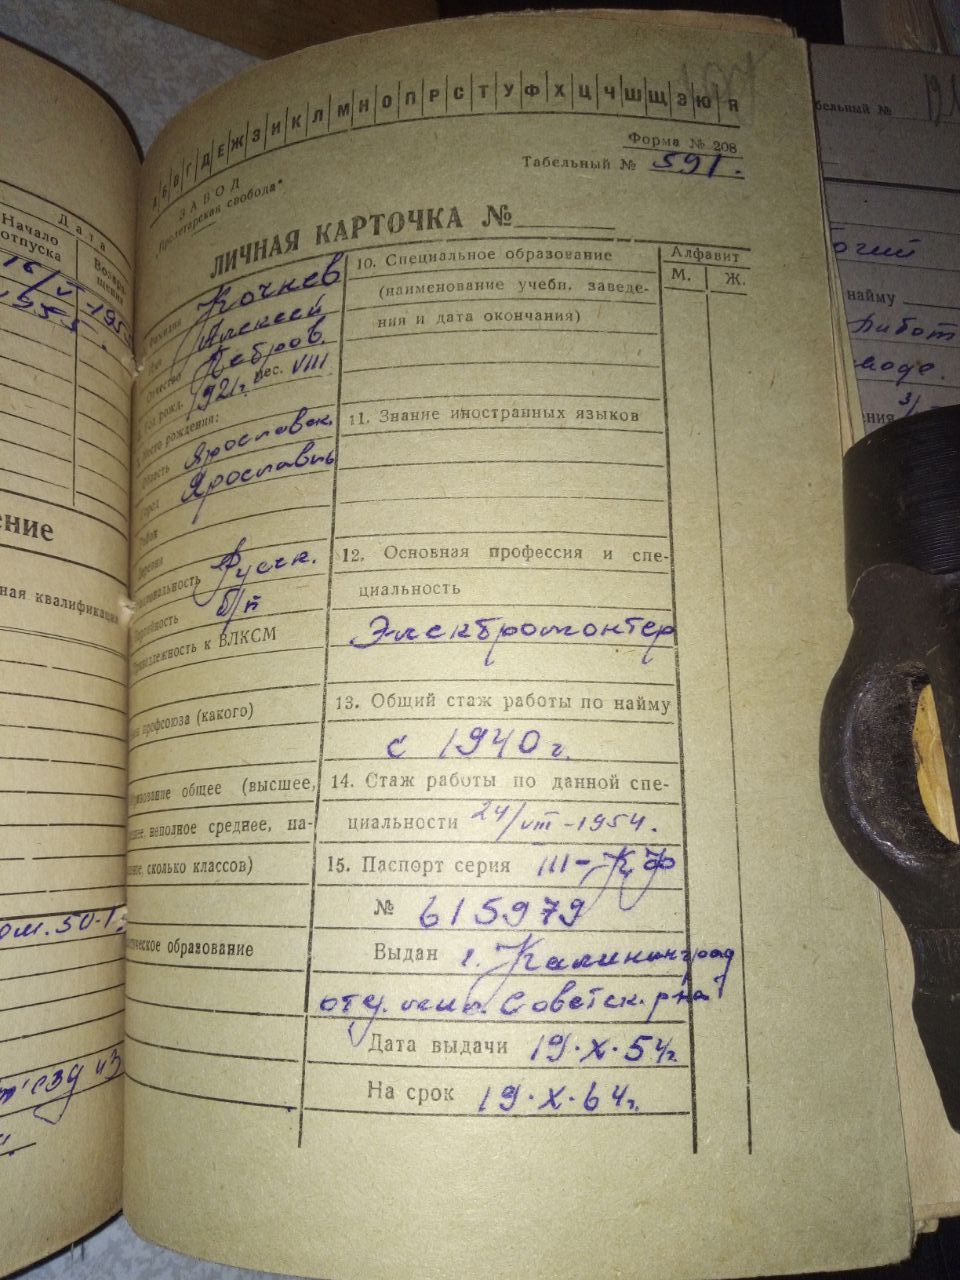 А Б В Г Д Е Ж З И К Л М Н О П Р С Т У Ф Х Ц Ч Ш Щ Э Ю Я
Форма № 208
Табельный № 591.
ЗАВОД
„Пролетарская свобода“
ЛИЧНАЯ КАРТОЧКА №
Фамилия Кочнев
Имя Алексей
Отчество Петров.
Год рожд. 1921г. мес. VIII
Место рождения:
Область Ярославск.
Город Ярославль
Район
Деревня
Национальность Русск.
Партийность б/п
Принадлежность к ВЛКСМ
профсоюза (какого)
Образование общее (высшее,
неполное среднее, на-
сколько классов)
образование
10. Специальное образование
(наименование учебн. заведе-
ния и дата окончания)
11. Знание иностранных языков
12. Основная профессия и спе-
циальность
Электромонтер
13. Общий стаж работы по найму
с 1940г.
14. Стаж работы по данной спе-
циальности 24/VIII-1954.
15. Паспорт серия III-КФ
№ 615979
Выдан г. Калининград
отд. мил. Советск. р-на
Дата выдачи 19·X·54г.
На срок 19·X·64г.
Алфавит
М. Ж.
Дата
Начало
отпуска
Возвра-
щения
16/V -195
1955
ение
ная квалификация
бельный №
найму
работ